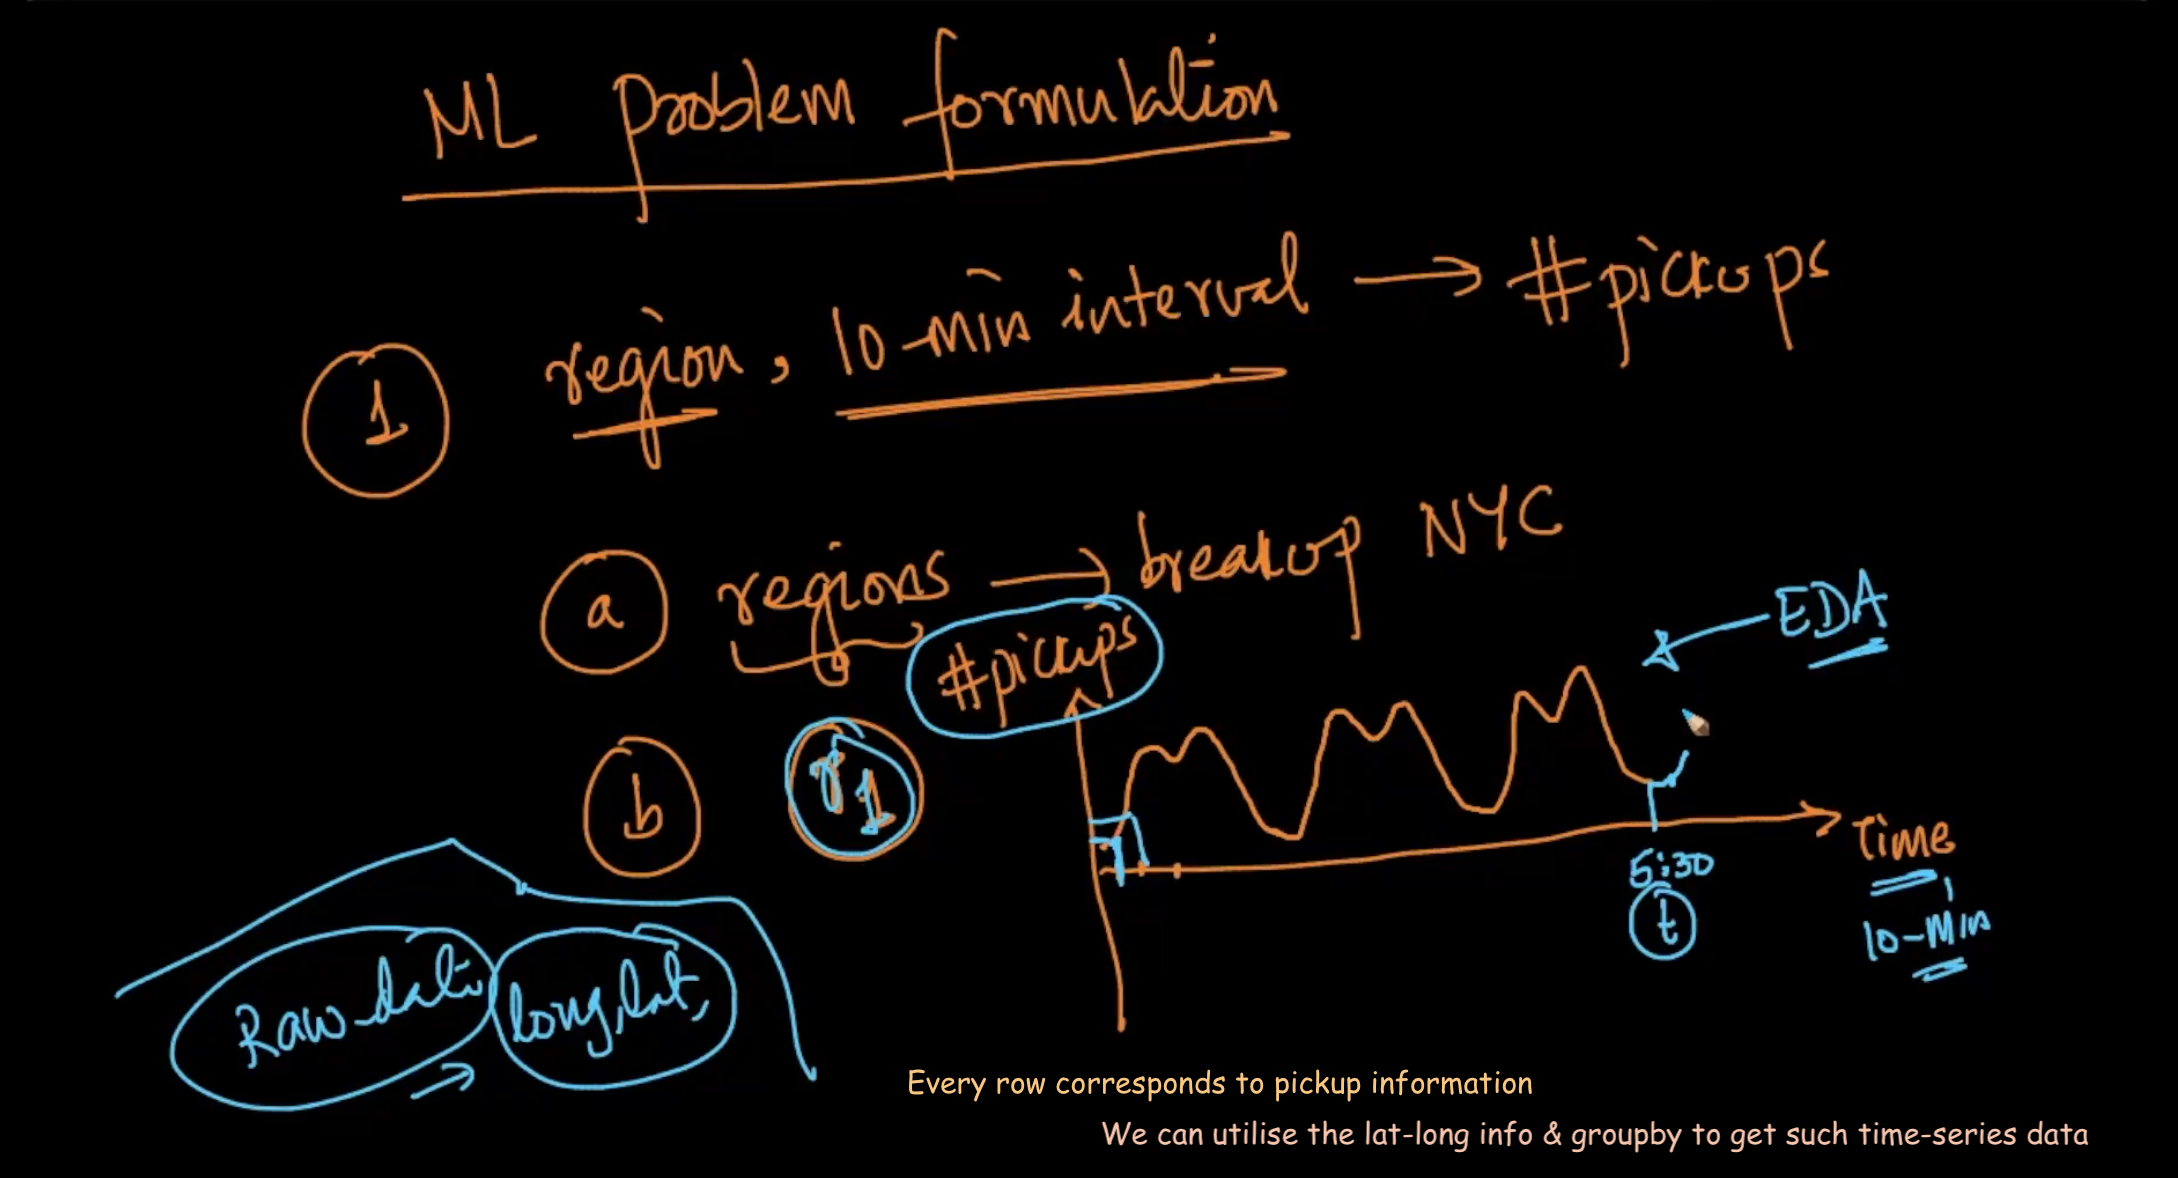 ML Problem formulation
1 region, 10-min interval → #pickups
a regions → breakup NYC
EDA
#pickups
b r1
Time
5:30
t
10-min
Raw-data long, lat,
Every row corresponds to pickup information
We can utilise the lat-long info & groupby to get such time-series data